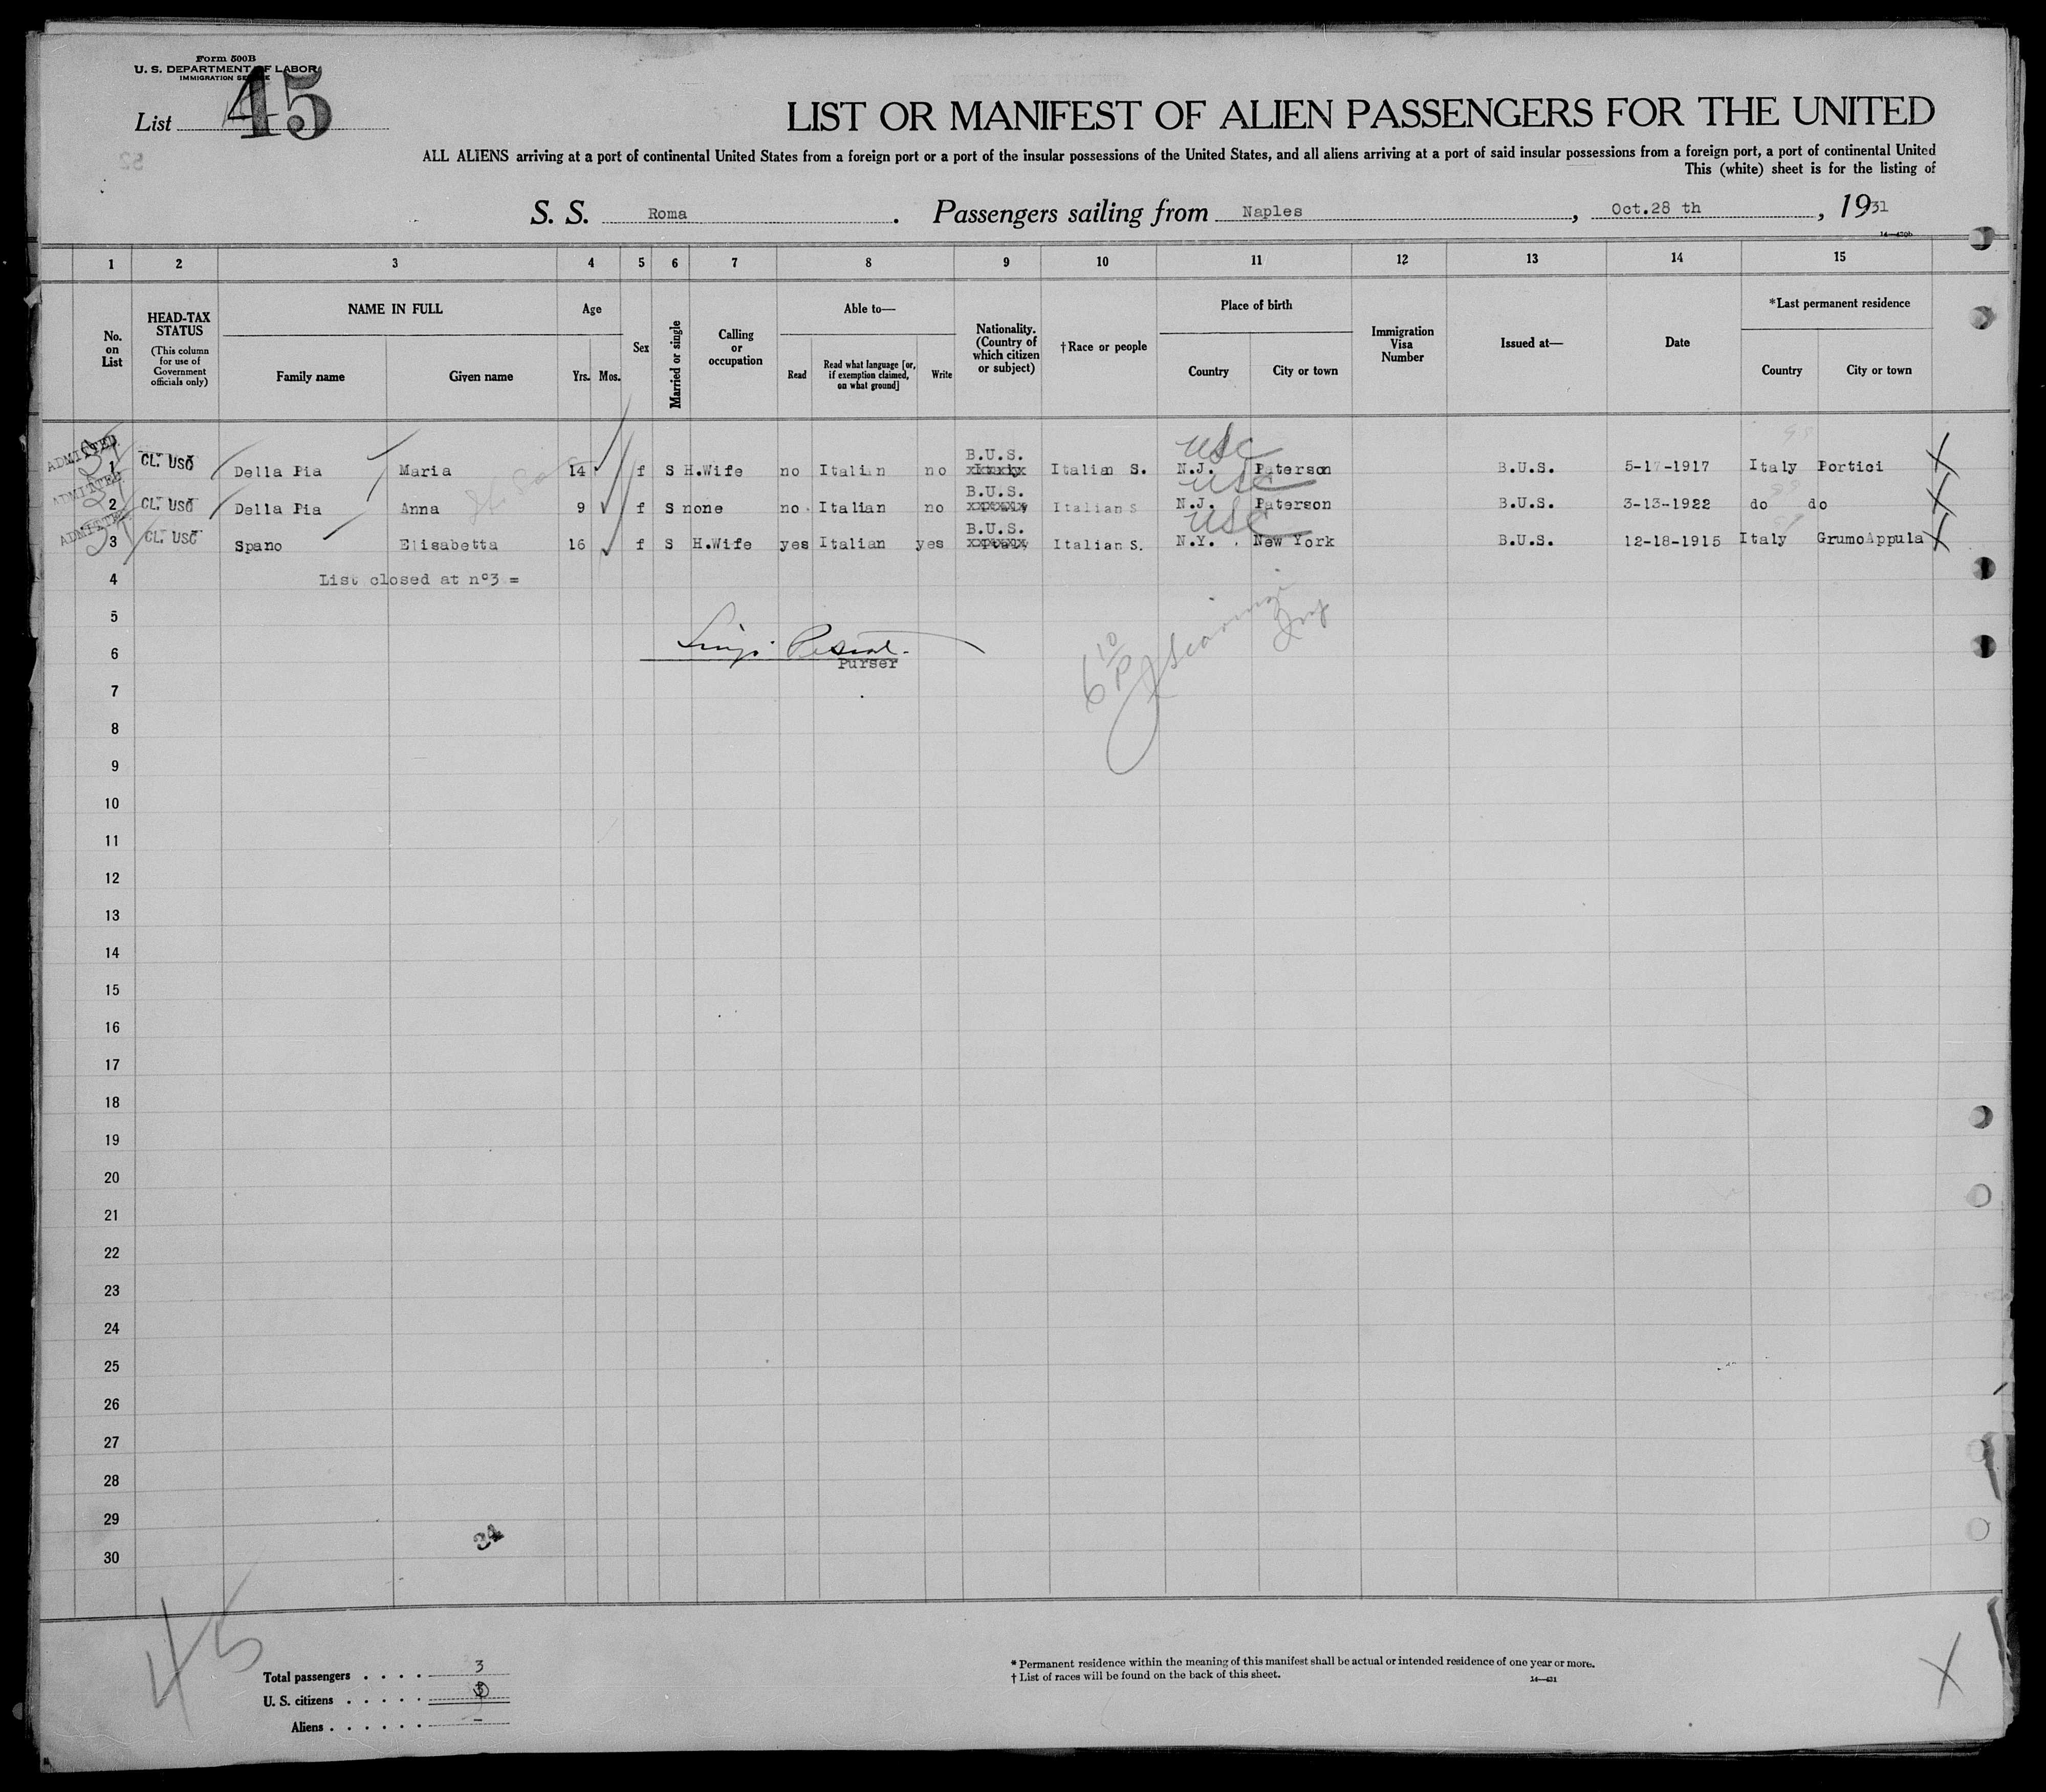 Form 500B
U. S. DEPARTMENT OF LABOR
IMMIGRATION SERVICE
List 45
LIST OR MANIFEST OF ALIEN PASSENGERS FOR THE UNITED
ALL ALIENS arriving at a port of continental United States from a foreign port or a port of the insular possessions of the United States, and all aliens arriving at a port of said insular possessions from a foreign port, a port of continental United
This (white) sheet is for the listing of
S. S. Roma . Passengers sailing from Naples , Oct.28 th , 1931
14—430b
1 2 3 4 5 6 7 8 9 10 11 12 13 14 15
No. on List
HEAD-TAX STATUS (This column for use of Government officials only)
NAME IN FULL
Family name Given name
Age
Yrs. Mos.
Sex
Married or single
Calling or occupation
Able to—
Read
Read what language [or, if exemption claimed, on what ground]
Write
Nationality. (Country of which citizen or subject)
†Race or people
Place of birth
Country City or town
Immigration Visa Number
Issued at—
Date
*Last permanent residence
Country City or town
ADMITTED 1 CL. USC Della Pia Maria 14 f S H.Wife no Italian no B.U.S. Italian S. USC N.J. Paterson B.U.S. 5-17-1917 Italy Portici
ADMITTED 2 CL. USC Della Pia Anna 9 f S none no Italian no B.U.S. Italian S USC N.J. Paterson B.U.S. 3-13-1922 do do
ADMITTED 3 CL. USC Spano Elisabetta 16 f S H.Wife yes Italian yes B.U.S. Italian S. USC N.Y. New York B.U.S. 12-18-1915 Italy GrumoAppula
4 List closed at nº3 =
5
6
Purser
7
8
9
10
11
12
13
14
15
16
17
18
19
20
21
22
23
24
25
26
27
28
29
34
30
45
Total passengers . . . . 3
U. S. citizens . . . . . 3
Aliens . . . . . . –
* Permanent residence within the meaning of this manifest shall be actual or intended residence of one year or more.
† List of races will be found on the back of this sheet.
14—431